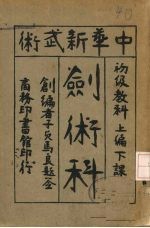 中華新武術
初級教科 上編下課
劍術科
創編者子貞馬良題签
商務印書館印行